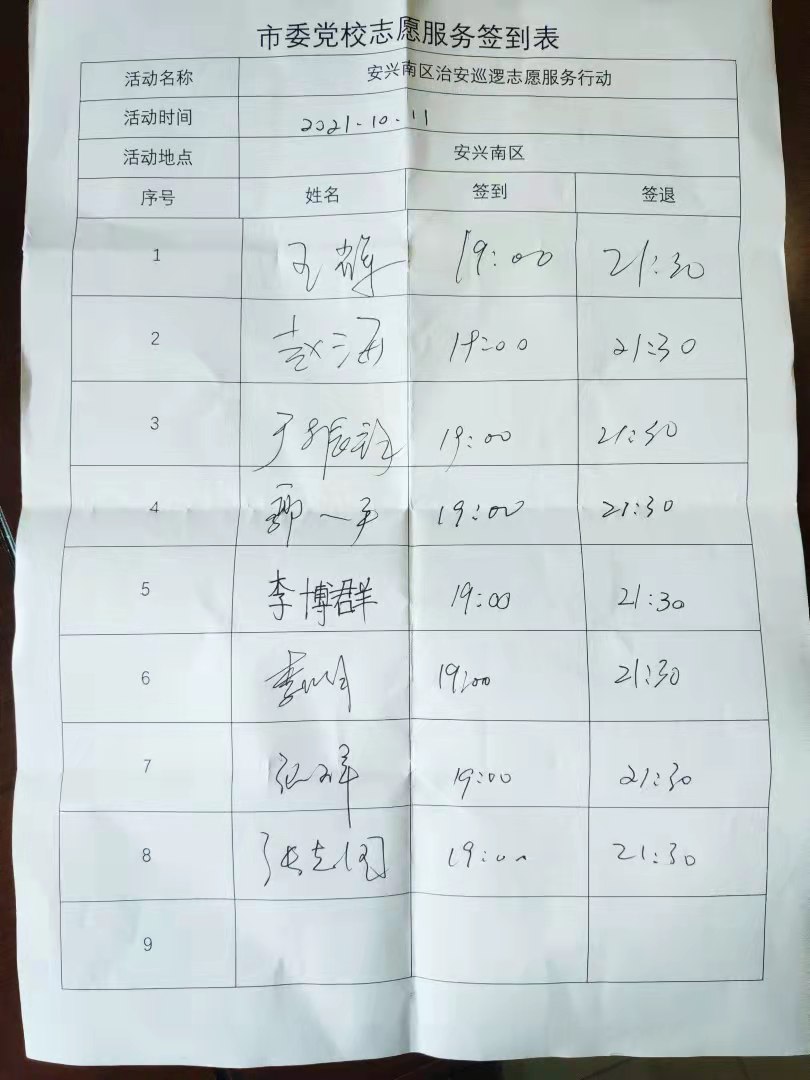 市委党校志愿服务签到表
活动名称 安兴南区治安巡逻志愿服务行动
活动时间 2021-10-11
活动地点 安兴南区
序号 姓名 签到 签退
1 王 19:00 21:30
2 赵海 19:00 21:30
3 于振 19:00 21:30
4 郭一平 19:00 21:30
5 李博群 19:00 21:30
6 李 19:00 21:30
7 19:00 21:30
8 张志国 19:00 21:30
9